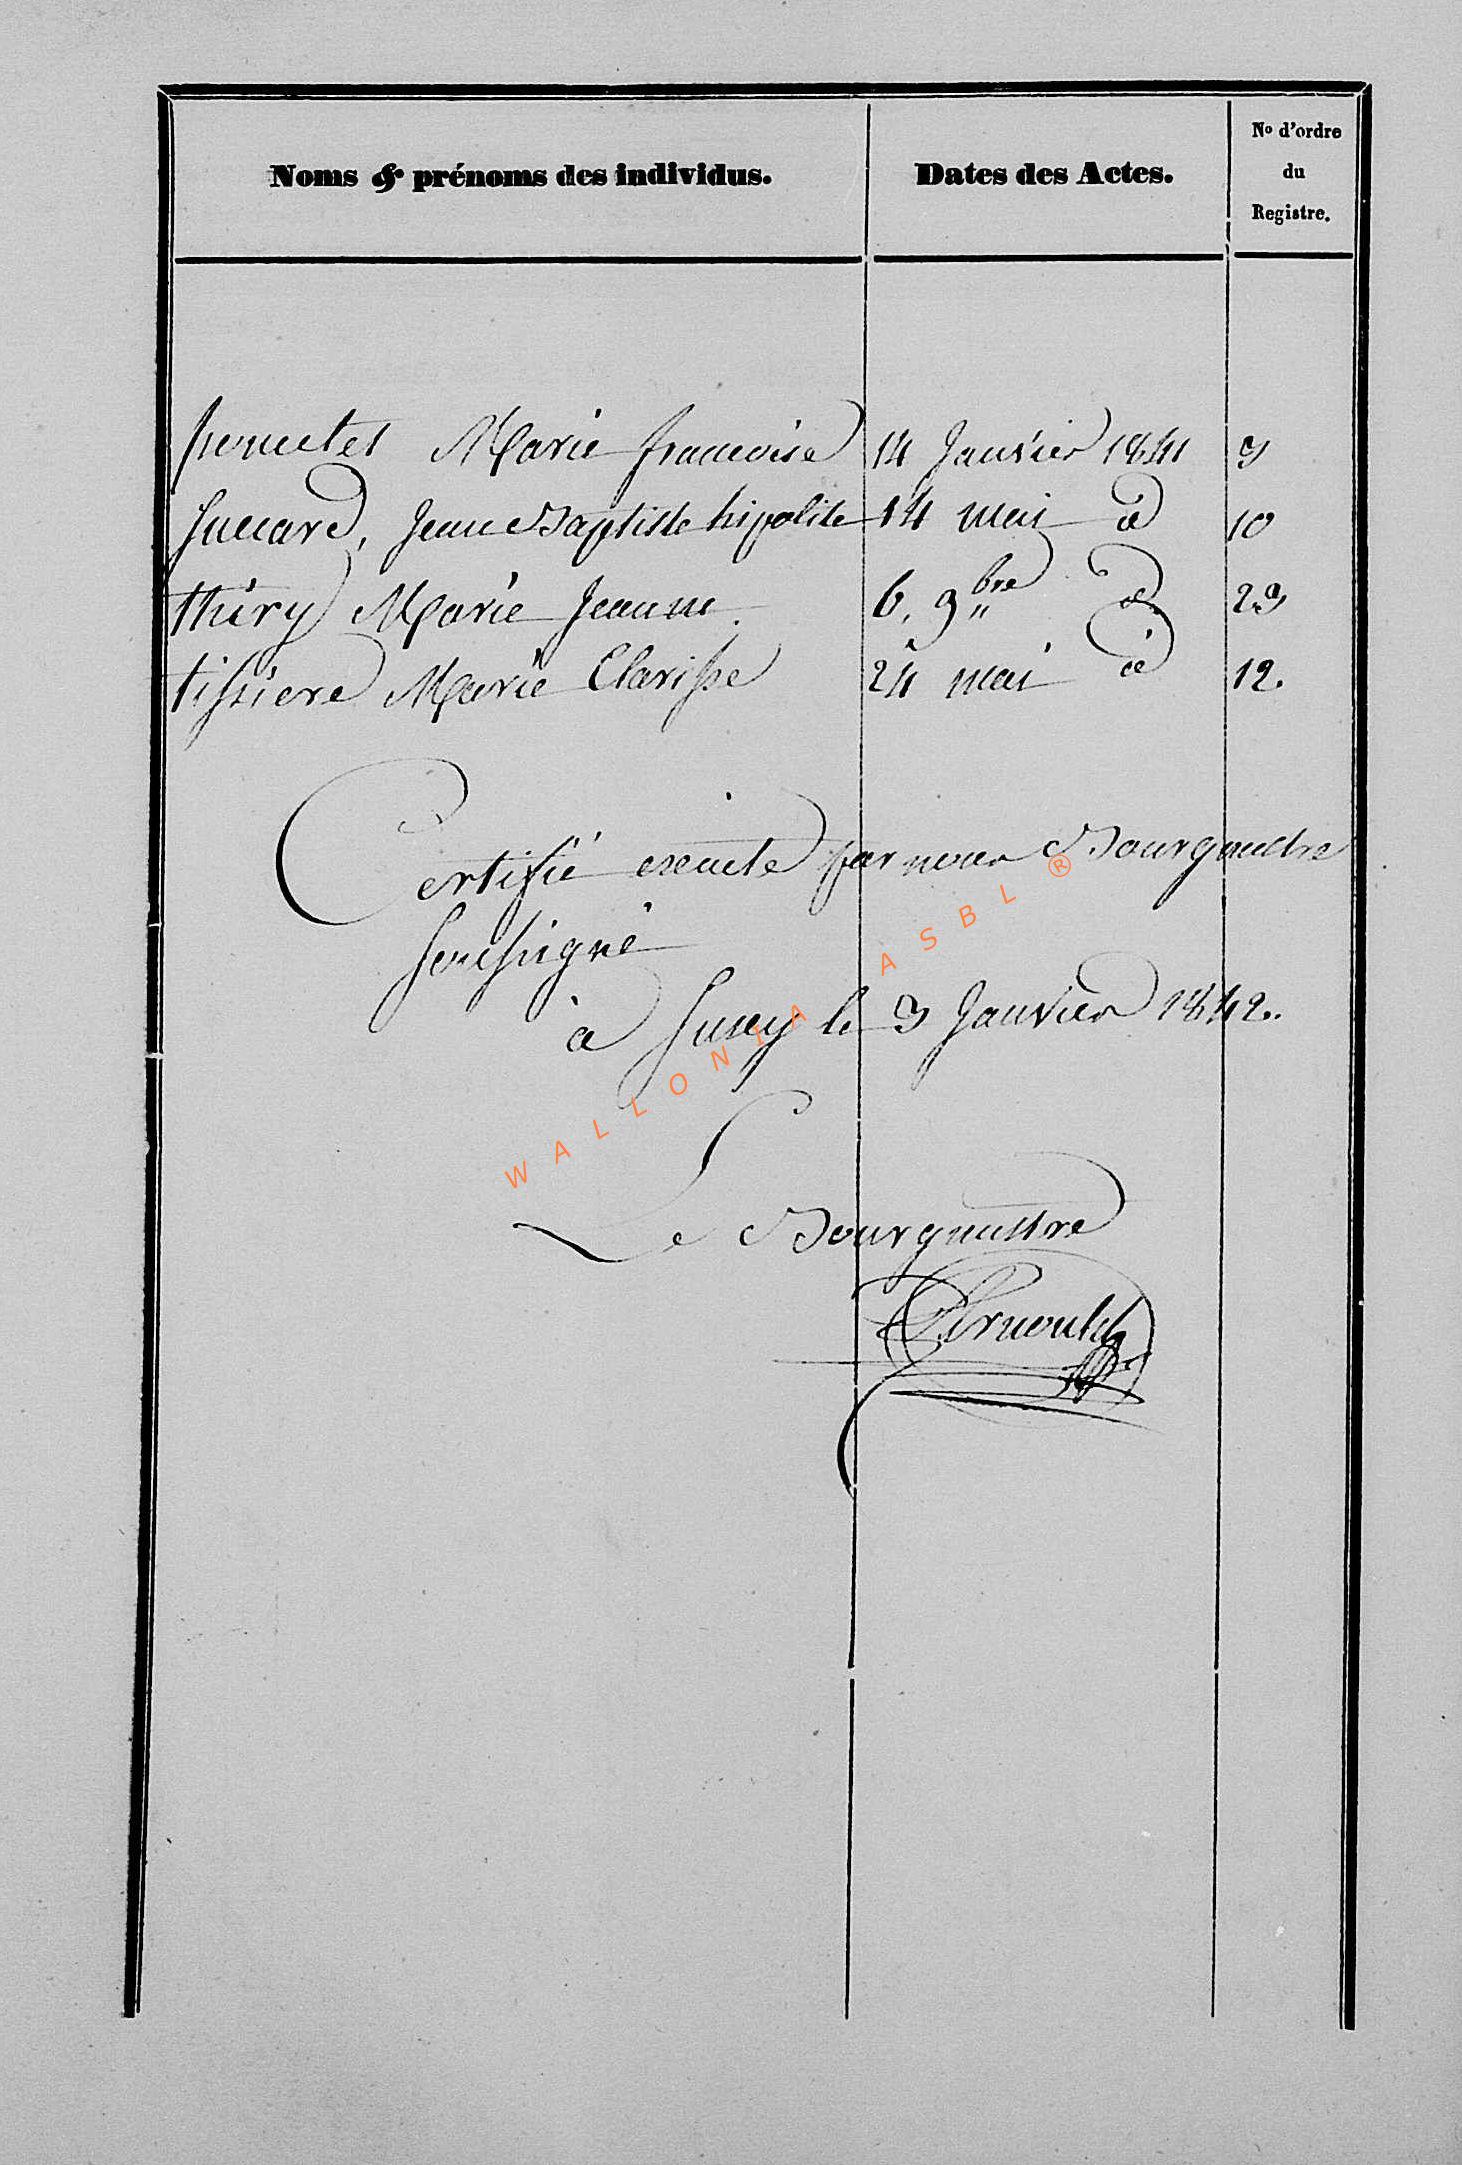 Noms & prénoms des individus.
Dates des Actes.
No d'ordre
du
Registre.
poncelet Marie francoise 14 Janvier 1841 3
Jean Baptiste hipolite 14 mai do 10
thiry Marie Jeanne. 6. 9bre do 23
tissiere Marie Clarisse 24 mai do 12.
Certifié exacte par nous Bourgmestre
soussigné
à Suxy le 3 Janvier 1842.
Le Bourgmestre
Arnould
WALLONIA ASBL ®